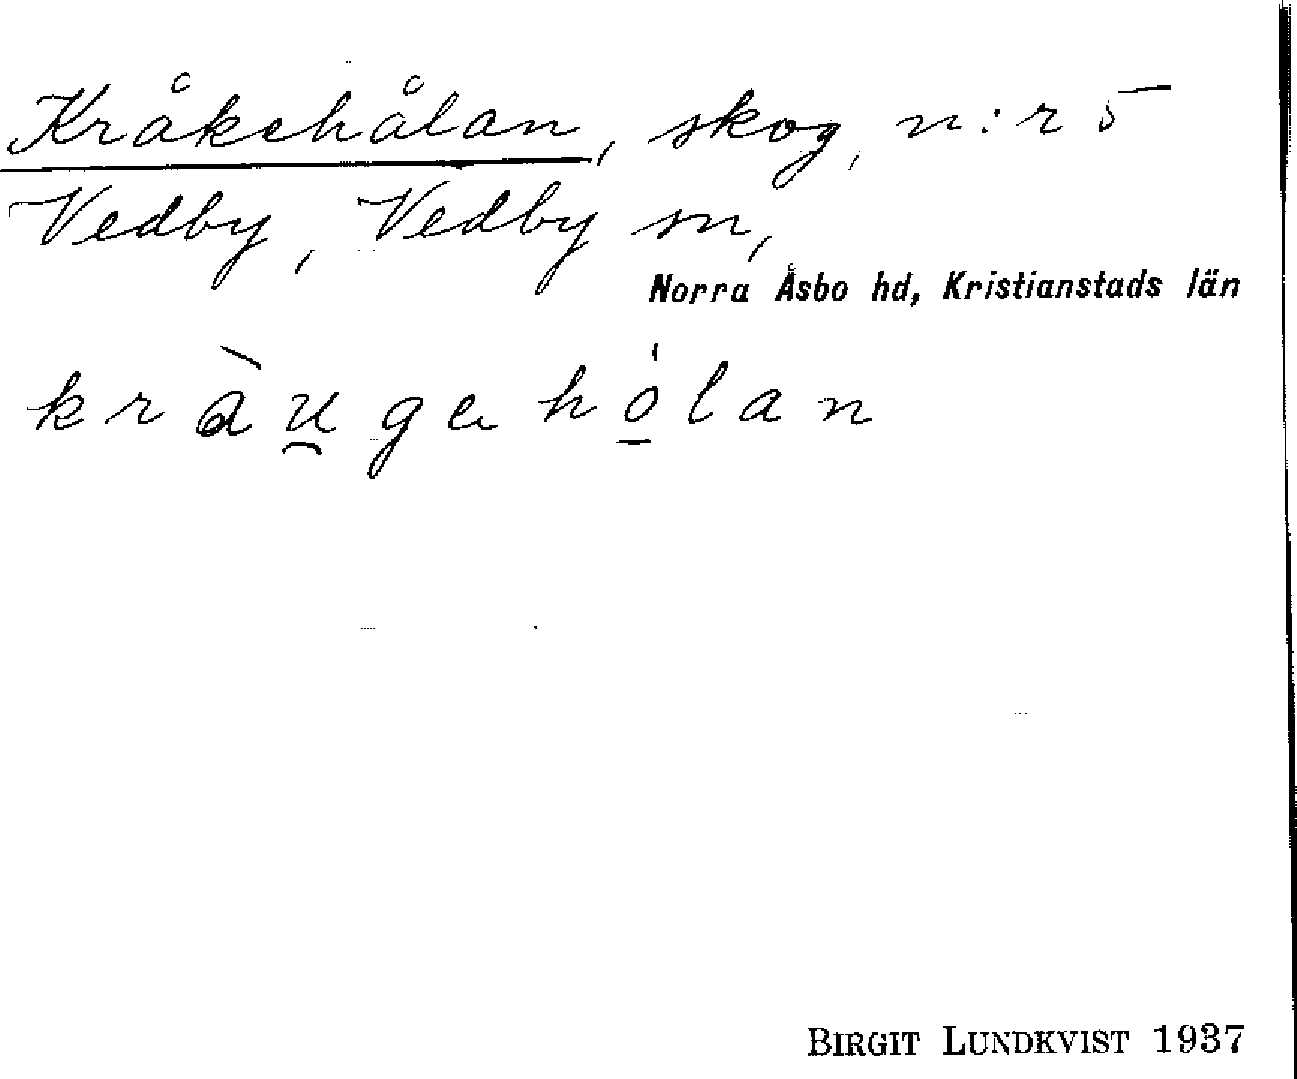 Kråkehålan, skog, n:r 5
Vedby, Vedby sn,
Norra Åsbo hd, Kristianstads län
kràu̯gahó̱lan
BIRGIT LUNDKVIST 1937